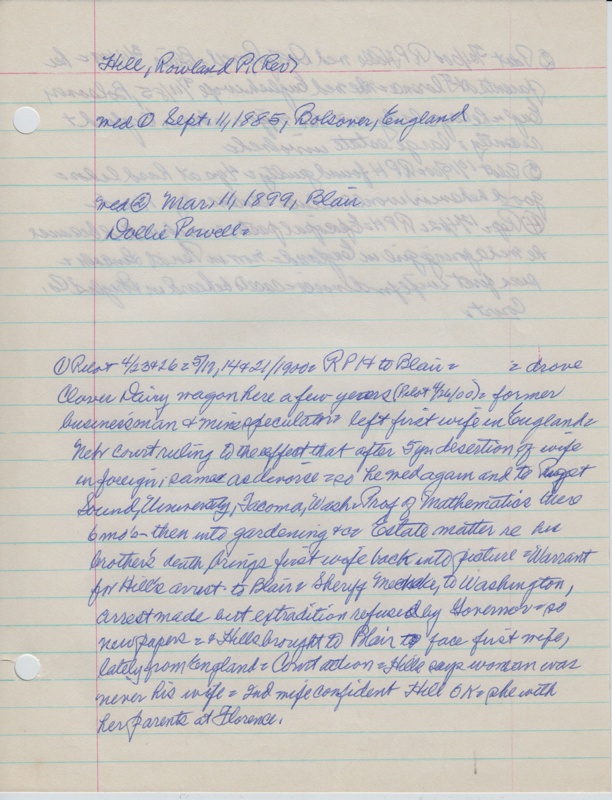 Hill, Rowland P. (Rev)
med ① Sept. 11, 1885, Bolsover, England
med ② Mar. 11, 1899, Blair
Dollie Powell =
① Pilot 4/23 & 26 = 5/17, 14 & 21/1900 = R P H to Blair = = drove
Clover Dairy wagon here a few years (Pilot 4/26/00) = former
businessman & mine speculator = left first wife in England =
Nebr court ruling to the effect that after 5 yr desertion of wife
in foreign, same as divorse = so he med again and to Puget
Sound, University, Tacoma, Wash = Prof of Mathematics there
6 mos - then into gardening &c = Estate matter re his
brother's death brings first wife back into picture = Warrant
for Hill's arrest - to Blair = Sheriff to Washington,
arrest made but extradition refused by Governor = so
new papers = & Hills brought to Blair to face first wife,
lately from England = Court action = Hills says woman was
never his wife = 2nd wife confident Hill OK = she with
her parents at Florence.